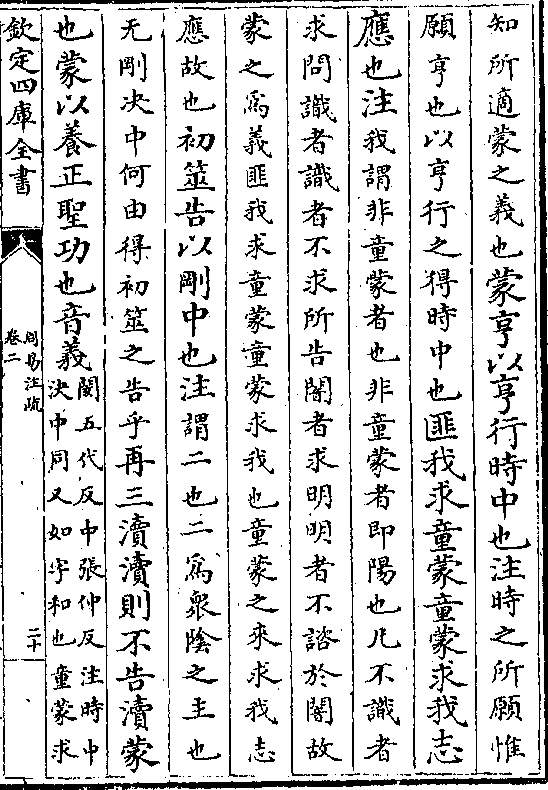 知所適蒙之義也蒙亨以亨行時中也注時之所願惟
願亨也以亨行之得時中也匪我求童蒙童蒙求我志
應也注我謂非童蒙者也非童蒙者即陽也凡不識者
求問識者識者不求所告闇者求明明者不諮於闇故
蒙之爲義匪我求童蒙童蒙求我也童蒙之來求我志
應故也初筮告以剛中也注謂二也二爲衆陰之主也
无剛决中何由得初筮之告乎再三瀆瀆則不告瀆蒙
也蒙以養正聖功也音義
闃五代反中張仲反注時中
决中同又如字和也童蒙求
欽定四庫全書
周易注疏
卷二
二十